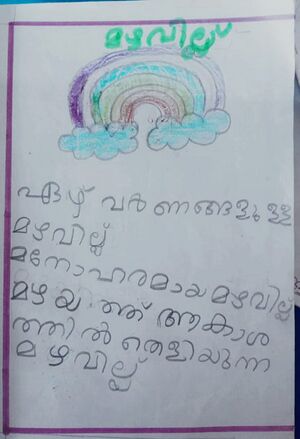 മഴവില്ല്
ഏഴ് വർണങ്ങളുള്ള
മഴവില്ല്
മനോഹരമായ മഴവില്ല്
മഴയത്ത് ആകാശ
ത്തിൽ തെളിയുന്ന
മഴവില്ല്